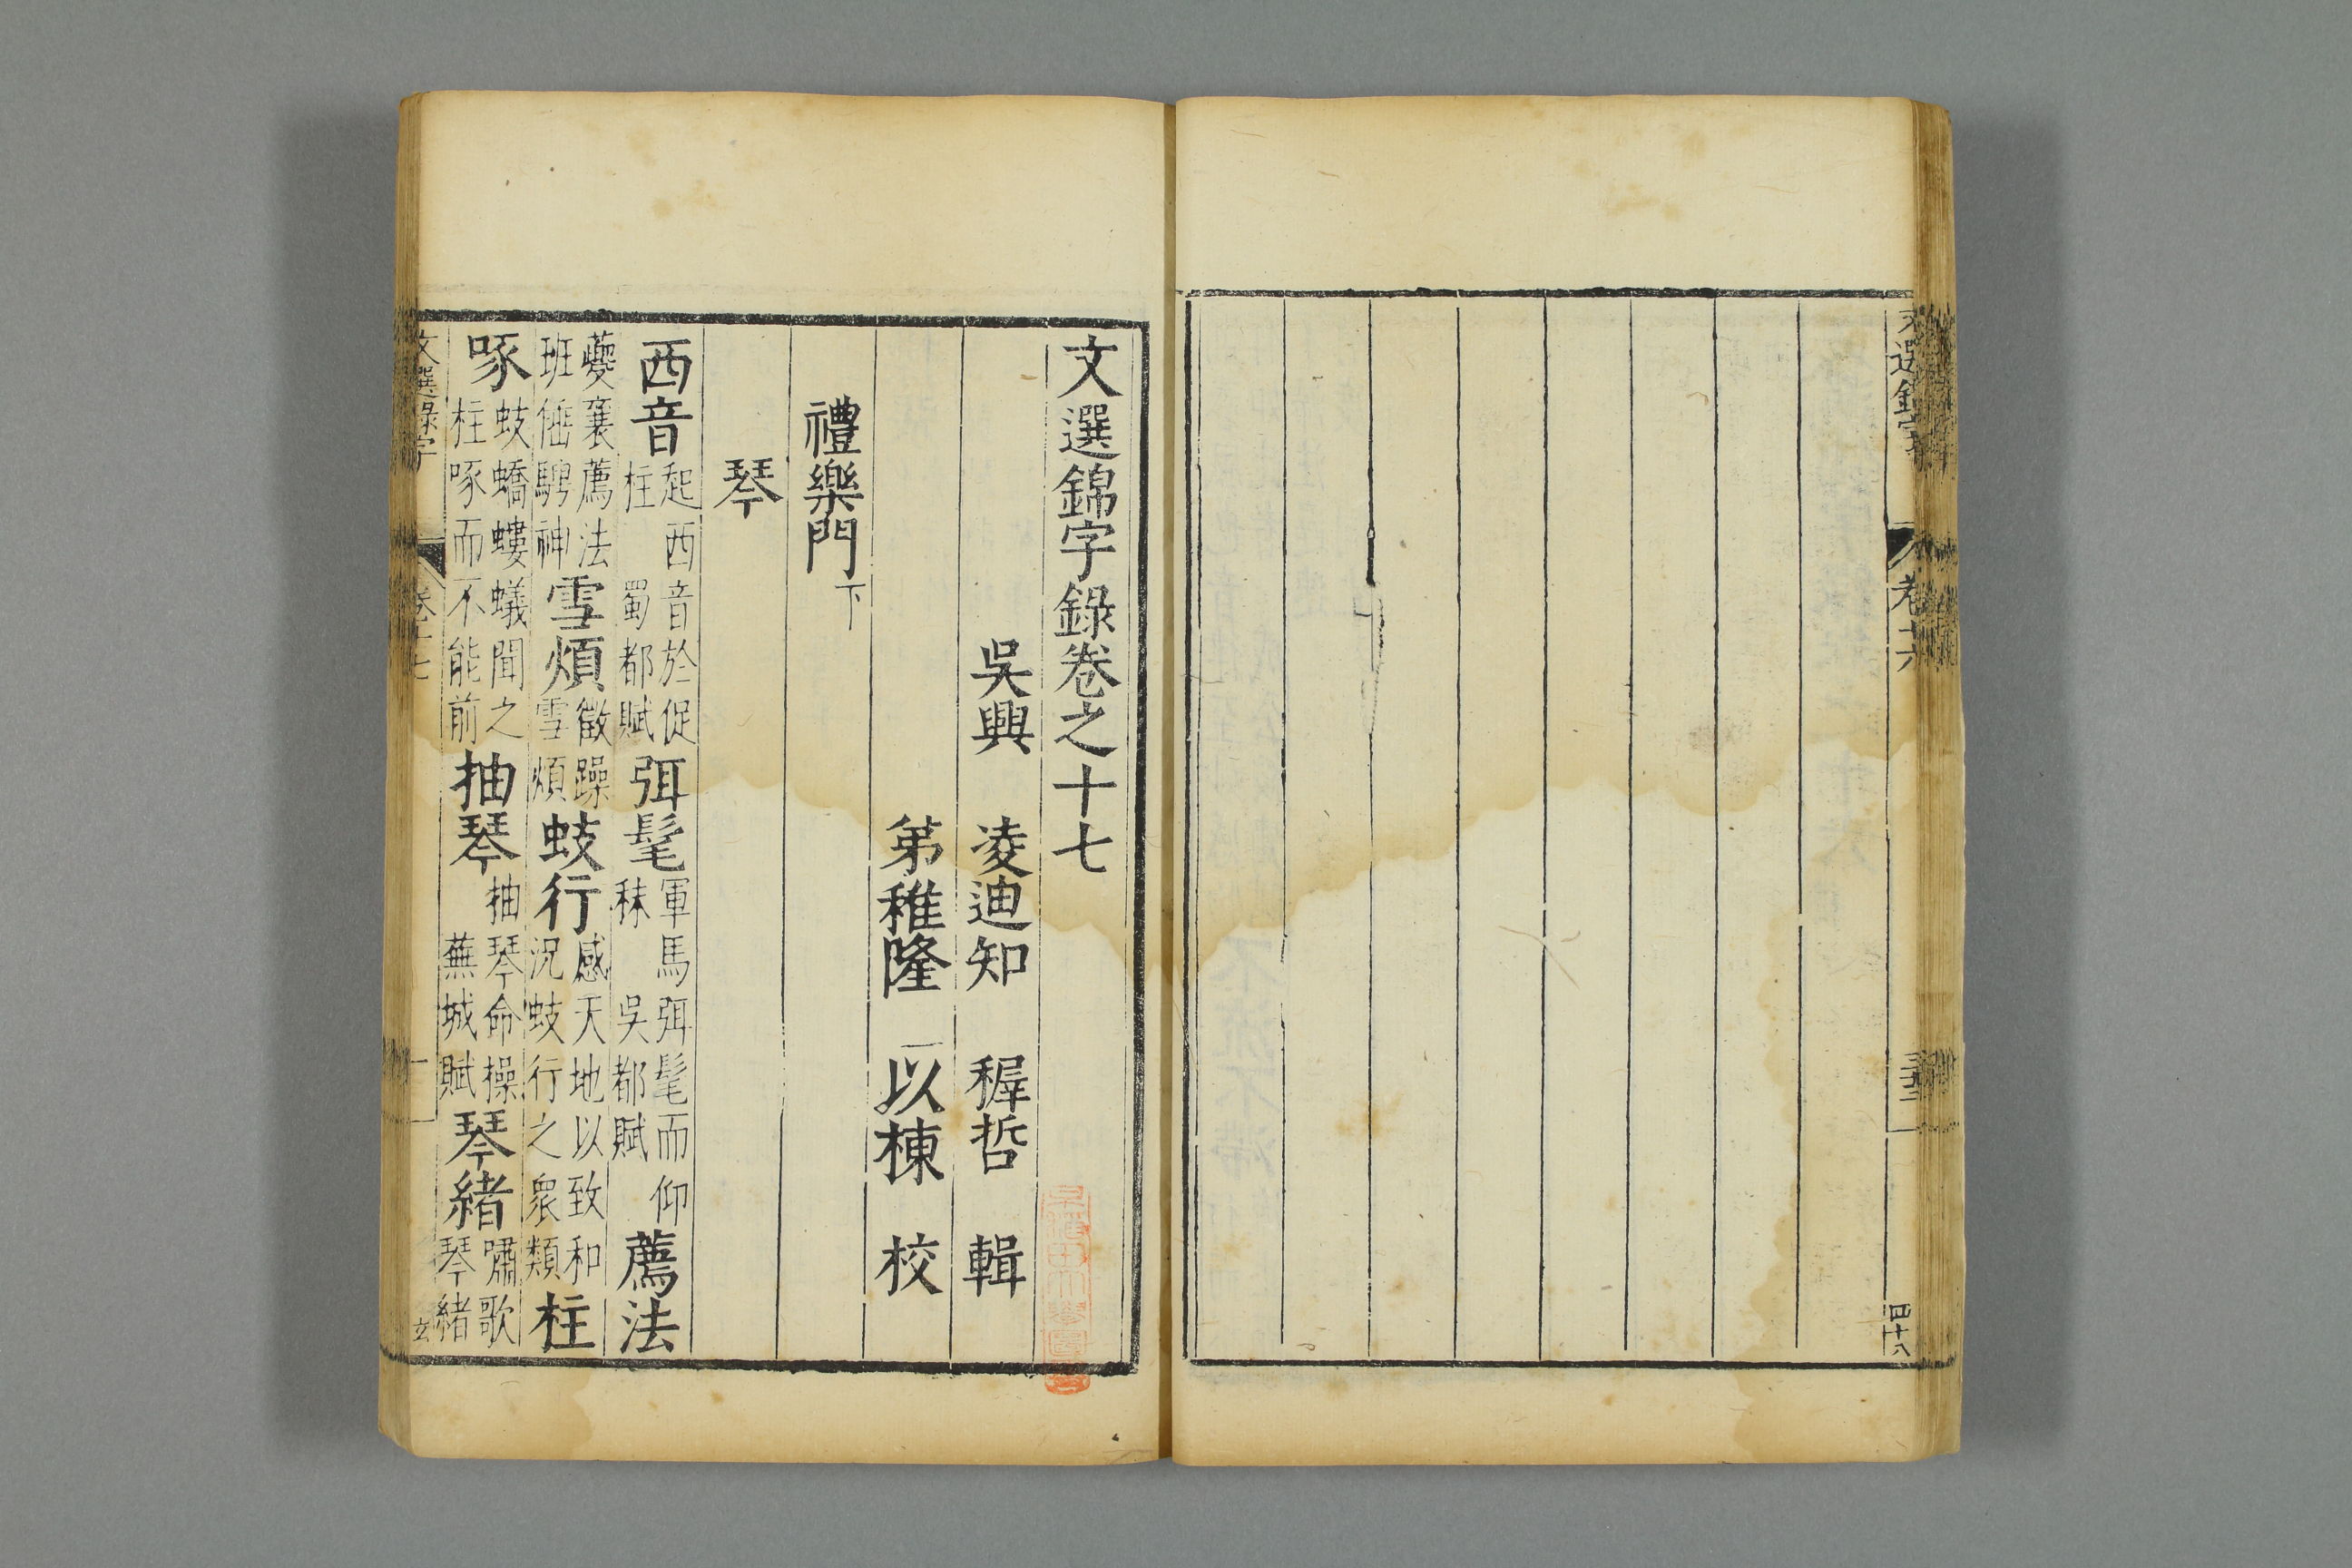 文選錦字
卷十六
四十八
文選錦字錄卷之十七
吳興 凌迪知 穉哲 輯
弟稚隆 以棟 校
禮樂門下
琴
西音起西音於促柱 蜀都賦弭髦軍馬弭髦而仰秣 吳都賦薦法
夔襄薦法班倕騁神雪煩徵躁雪煩蚑行感天地以致和況蚑行之衆類柱
啄蚑蟜螻蟻聞之柱啄而不能前抽琴抽琴命操 蕪城賦琴緒嘯歌琴緒
文選錄字
卷十七
一
玄
早稲田大學圖書